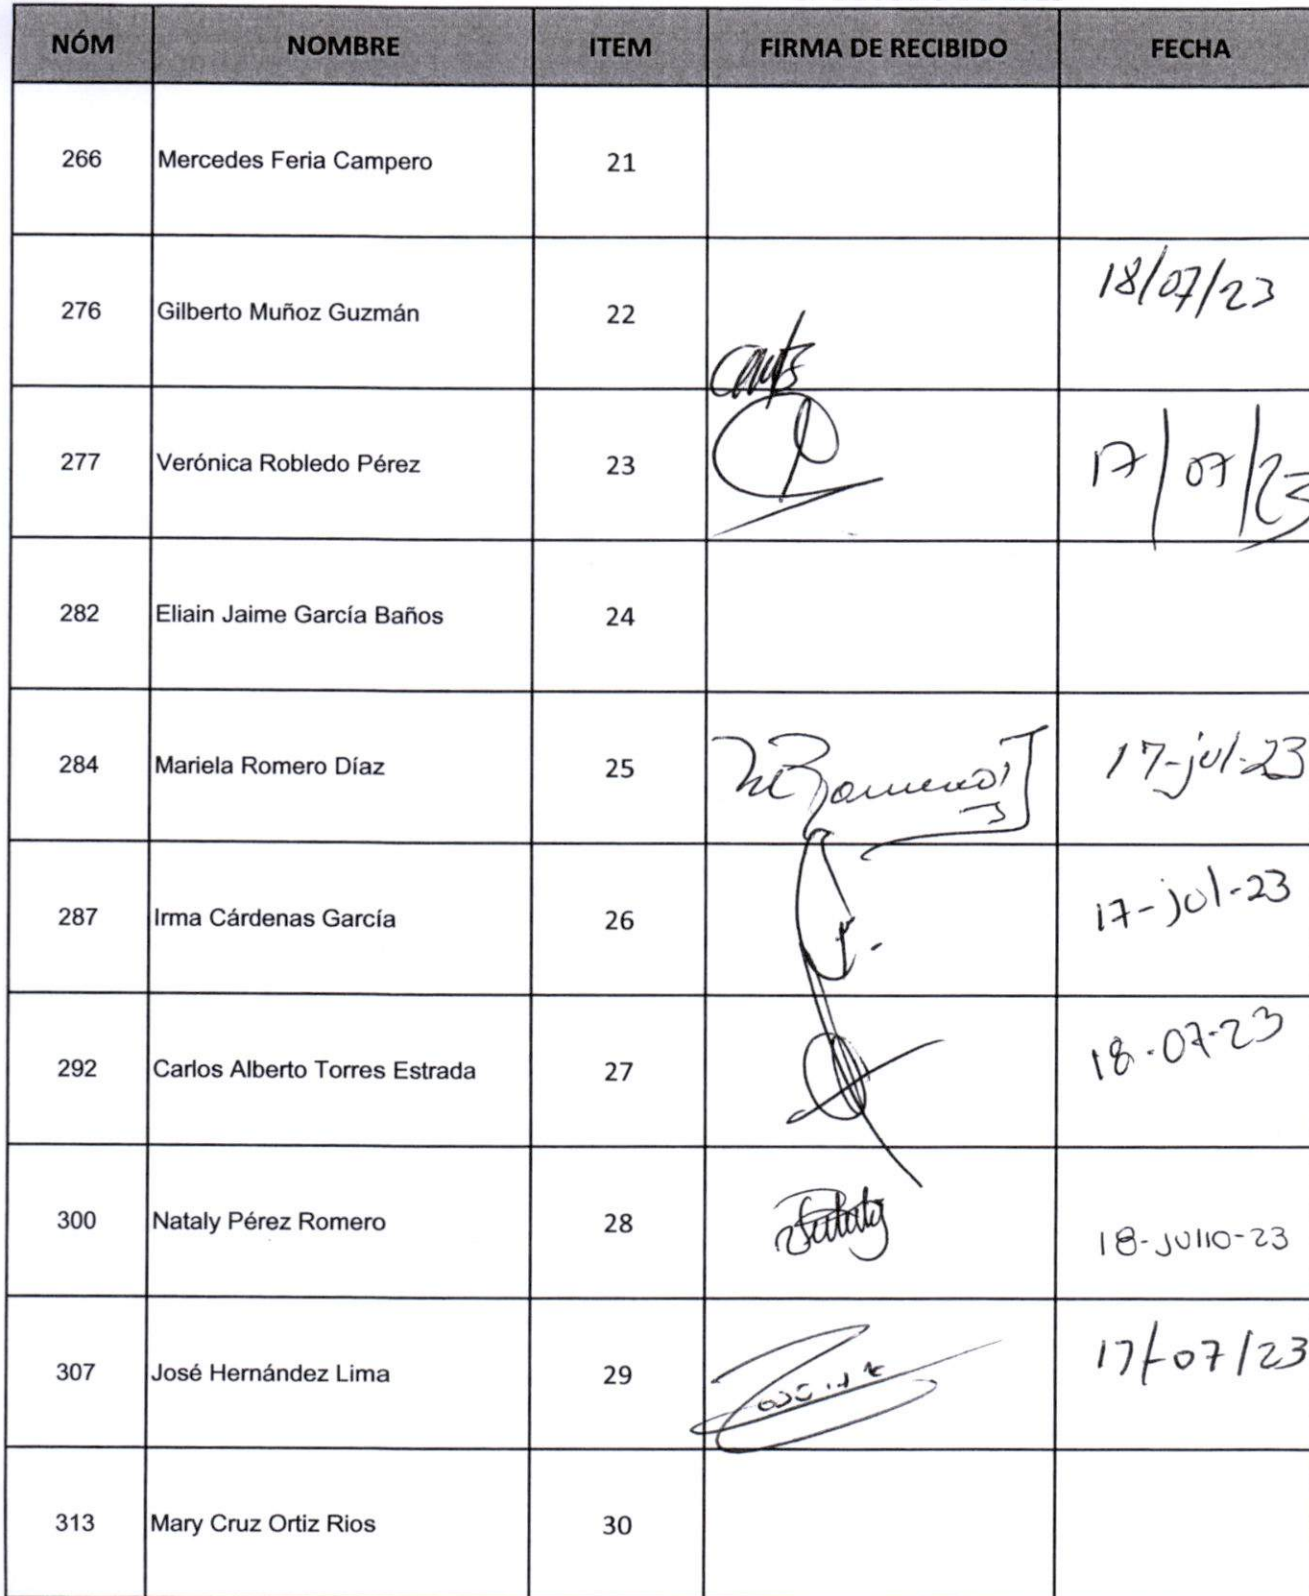 NÓM NOMBRE ITEM FIRMA DE RECIBIDO FECHA
266 Mercedes Feria Campero 21
276 Gilberto Muñoz Guzmán 22 18/07/23
277 Verónica Robledo Pérez 23 17/07/23
282 Eliain Jaime García Baños 24
284 Mariela Romero Díaz 25 17-jul-23
287 Irma Cárdenas García 26 17-jul-23
292 Carlos Alberto Torres Estrada 27 18-07-23
300 Nataly Pérez Romero 28 Nataly 18-julio-23
307 José Hernández Lima 29 17/07/23
313 Mary Cruz Ortiz Rios 30